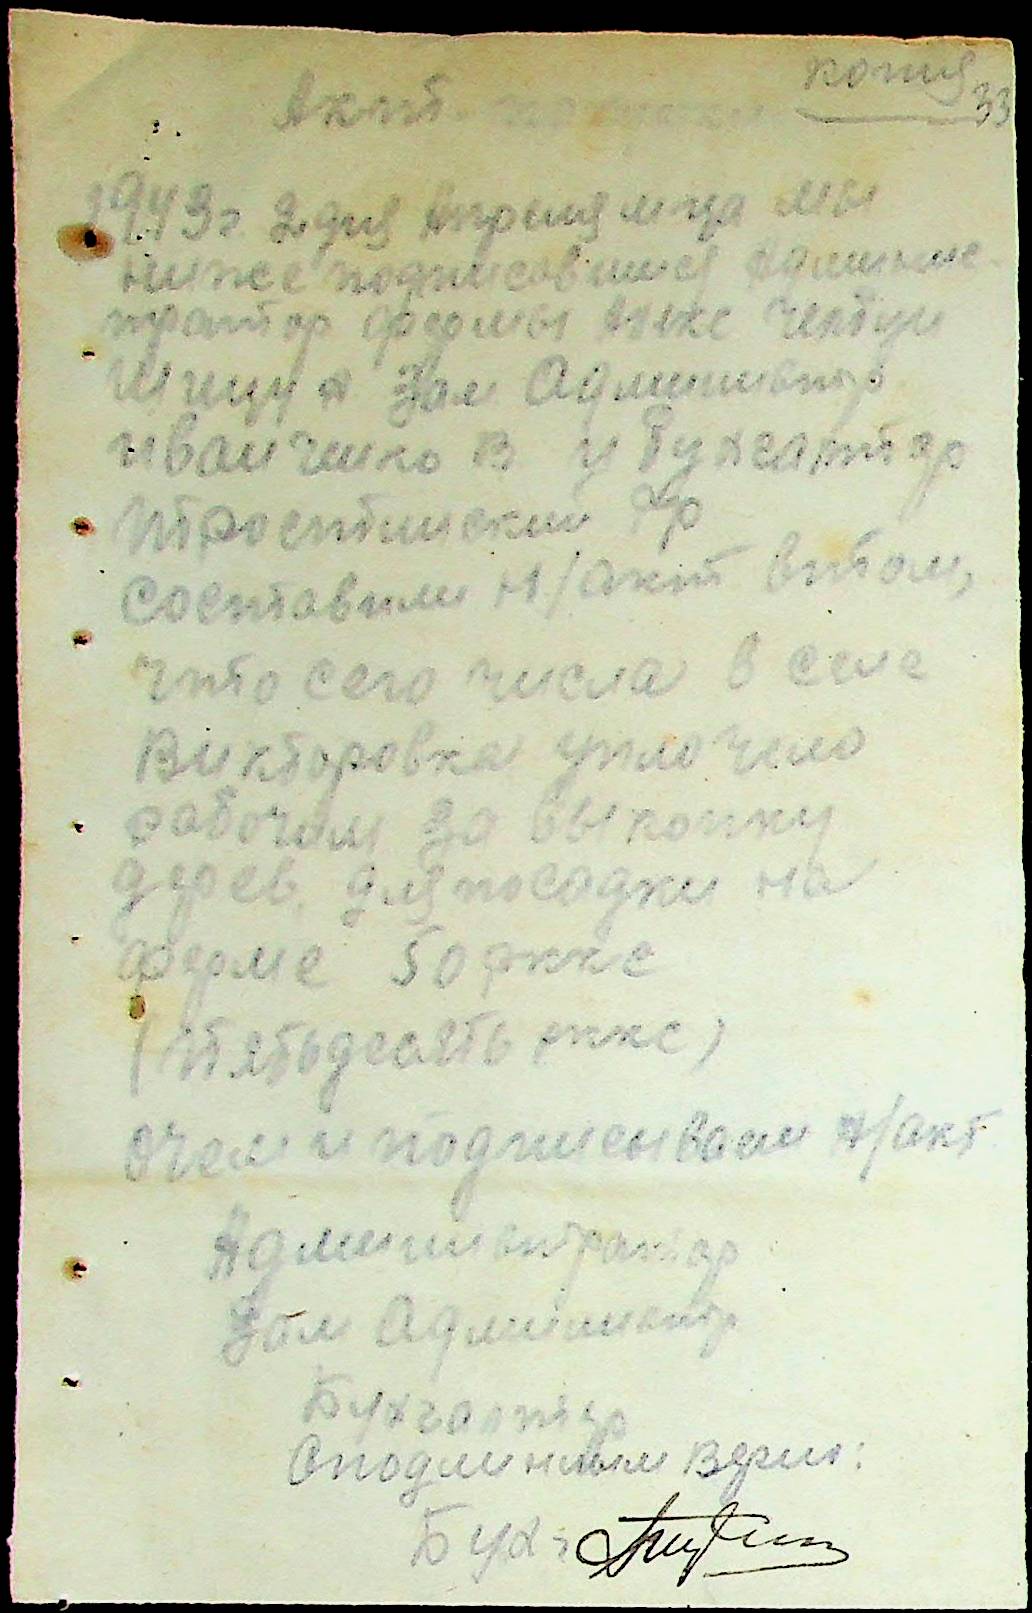 копия
33
Акт
1943г 2 дня Апреля м-ца мы
ниже подписавшиеся Админис-
тратор фермы
Зам Администр
Иванченко В и Бухгалтер
Тростинский Гр
составили н/акт в том,
что сего числа в селе
Викторовка уплочено
рабочим за выкопку
дерев. для посадки на
ферме 50 ркке
(Пятьдесять ркке)
очем и подписываем н/акт
Администратор
Зам Администр
Бухгалтер
Сподлинным верно:
Бух: